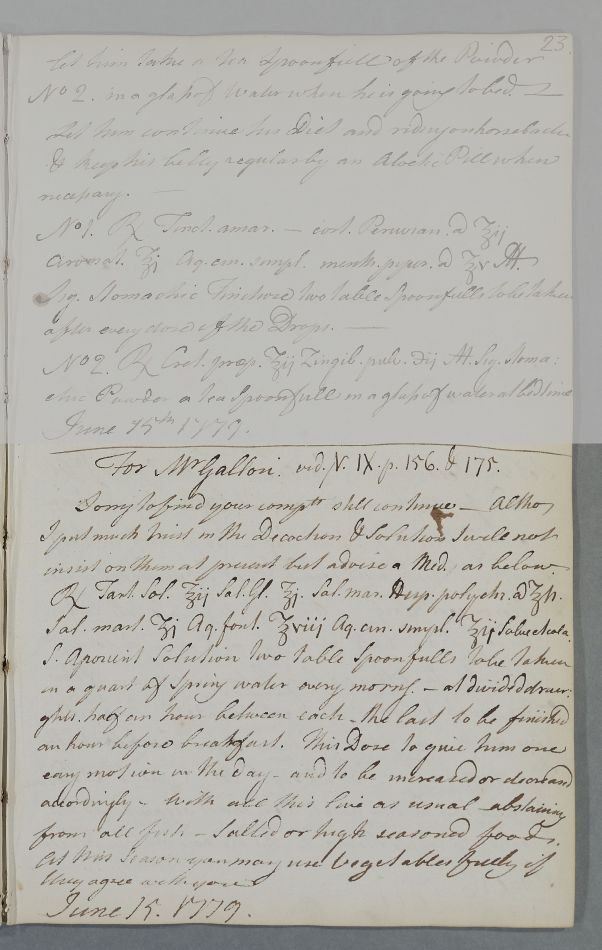 23.
Let him take a tea Spoonfull of the Powder
No 2. in a glass of Water when he is going to bed. —
Let him continue his Diet and riding on horseback
& keep his belly regular by an Aloetic Pill when
necessary. —
No 1. ℞ Tinct. amar. — cort. Peruvian. a ʒij
aromat. ʒj Aq. cin. simpl. menth. piper. a ʒv M.
Sig. Stomachic Tincture two table Spoonfulls to be taken
after every dose of the Drops. —
No 2. ℞ Cret. prep. ʒij Zingib. pulv. ℈ij M. Sig. Stoma:
chic Powder a tea Spoonfull in a glass of water at bedtime
June 15th 1779.
For Mr Gallori. vid. N. IX. p. 156. & 175.
Sorry to find your compts still continue — Altho
I put much trust in the Decoction & Solution I will not
insist on them at present but advise a Med. as below.
℞ Tart. Sol. ʒij Sal. Gl. ʒj. Sal. mar. polychr. a ʒß.
Sal. mart. ʒj Aq. font. ʒviij Aq. cin. simpl. ʒij Solve et cola
S. Aperient Solution two table Spoonfulls to be taken
in a quart of Spring water every morng. — at divided drau:
ghts. half an hour between each — the last to be finished
an hour before breakfast. This Dose to give him one
easy motion in the day — and to be increased or decreased
accordingly — With all this live as usual abstaining
from all fish — Salted or high seasoned foods.
At this Season you may use Vegetables freely if
they agree with you
June 15. 1779.